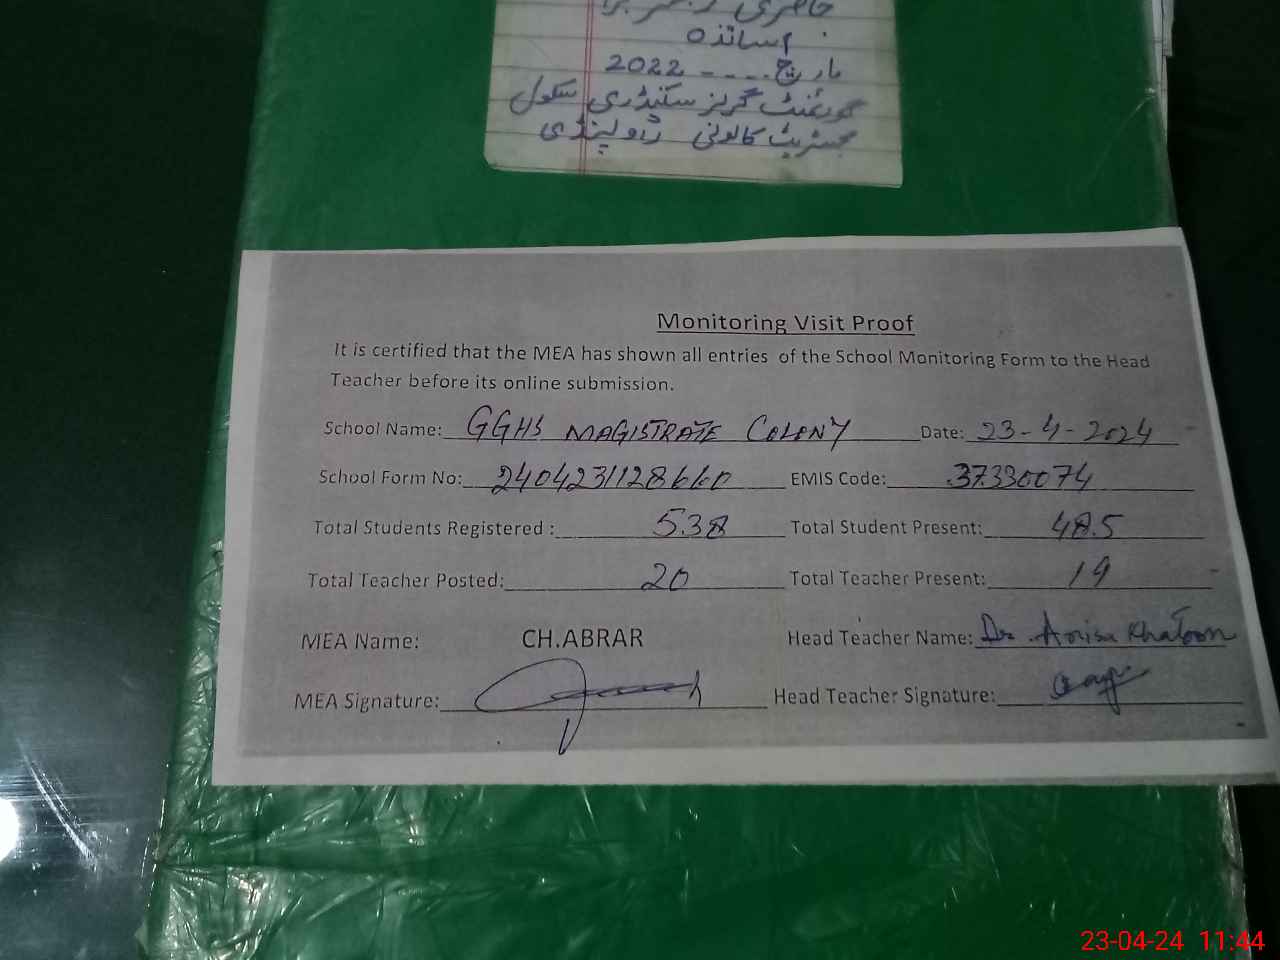 حاضری رجسٹر برا
اساتذہ
تاریخ.... 2022
گورنمنٹ گرلز سکینڈری سکول
مجسٹریٹ کالونی راولپنڈی
Monitoring Visit Proof
It is certified that the MEA has shown all entries of the School Monitoring Form to the Head
Teacher before its online submission.
School Name: GGHS MAGISTRATE COLONY Date: 23-4-2024
School Form No: 2404231128660 EMIS Code: 37330074
Total Students Registered : 538 Total Student Present: 485
Total Teacher Posted: 20 Total Teacher Present: 19
MEA Name: CH.ABRAR Head Teacher Name: Dr. Anisa Khatoon
MEA Signature: Head Teacher Signature:
23-04-24 11:44